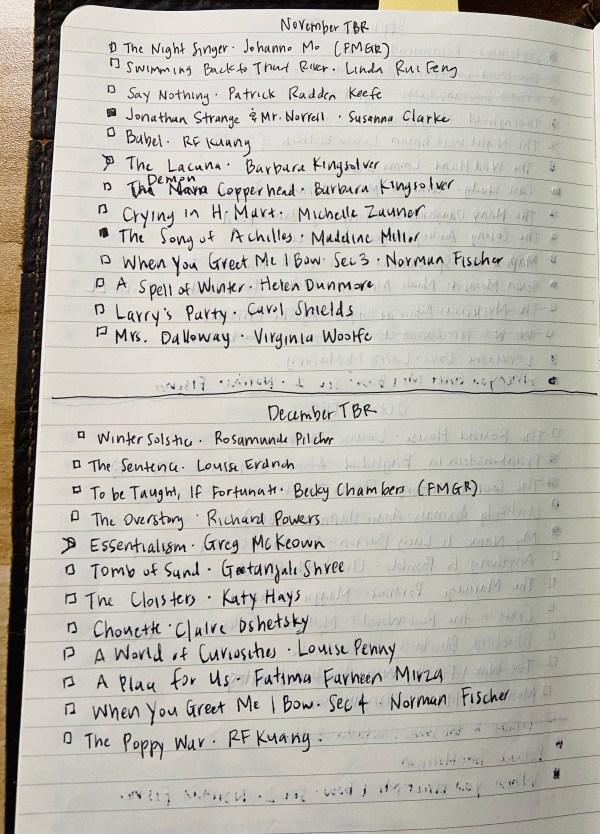 November TBR
The Night Singer · Johanna Mo (FMGR)
Swimming Back to Trout River · Linda Rui Feng
Say Nothing · Patrick Radden Keefe
Jonathan Strange & Mr. Norrell · Susanna Clarke
Babel · RF Kuang
The Lacuna · Barbara Kingsolver
Demon
The Copperhead · Barbara Kingsolver
Crying in H Mart · Michelle Zauner
The Song of Achilles · Madeline Miller
When You Greet Me I Bow · Sec 3 · Norman Fischer
A Spell of Winter · Helen Dunmore
Larry's Party · Carol Shields
Mrs. Dalloway · Virginia Woolfe
December TBR
Winter Solstice · Rosamunde Pilcher
The Sentence · Louise Erdrich
To be Taught, If Fortunate · Becky Chambers (FMGR)
The Overstory · Richard Powers
Essentialism · Greg McKeown
Tomb of Sand · Geetanjali Shree
The Cloisters · Katy Hays
Chouette · Claire Oshetsky
A World of Curiosities · Louise Penny
A Place for Us · Fatima Farheen Mirza
When You Greet Me I Bow · Sec 4 · Norman Fischer
The Poppy War · RF Kuang.